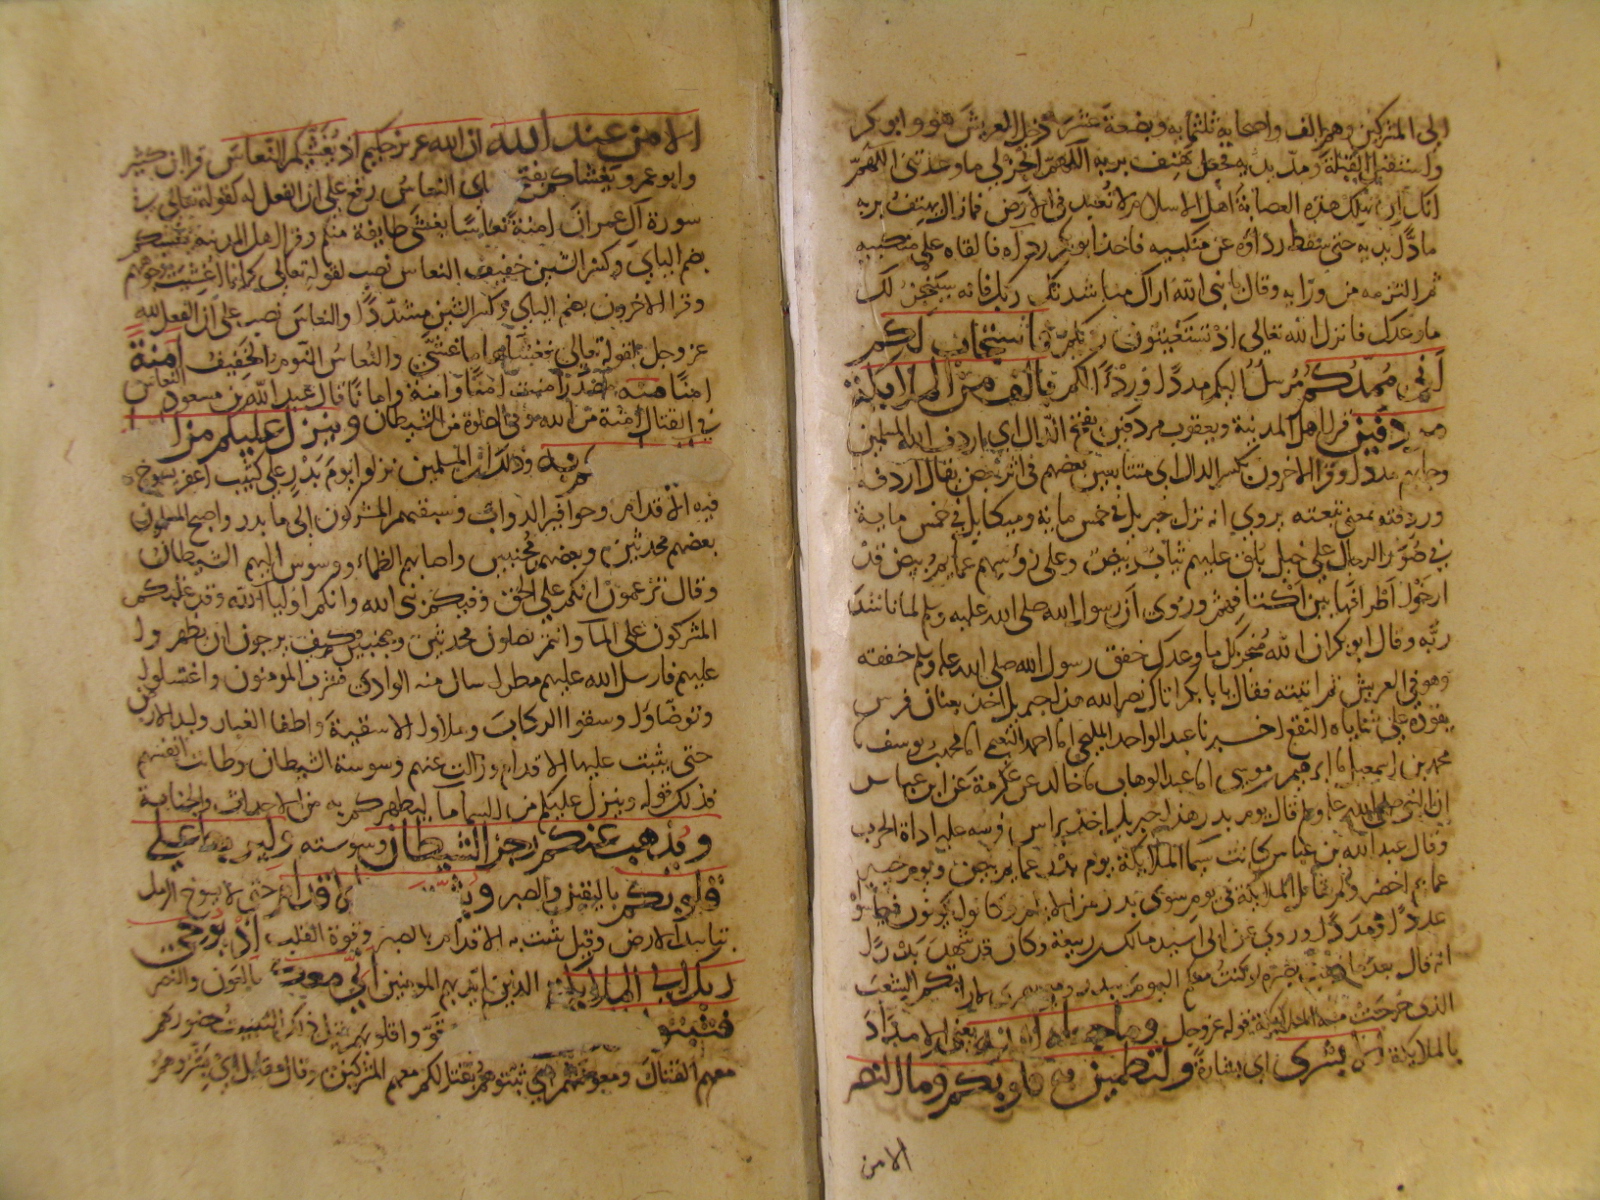 الى المشركين وهم الف واصحابه ثلثمايه وبضعة عشر دخل العريش هو وابو بكر
واستقبل القبلة ومد يديه فجعل يهتف بربه اللهم انجز لي ما وعدتني اللهم
انك ان تهلك هذه العصابة اهل الاسلام لا تعبد في الارض فما زال يهتف بربه
مادا يديه حتى سقط رداؤه عن منكبيه فاخذ ابو بكر رداه فالقاه على منكبيه
ثم التزمه من ورايه وقال يا نبي الله كفاك مناشدتك ربك فانه سينجز لك
ما وعدك فانزل الله تعالى اذ تستغيثون ربكم فاستجاب لكم
اني ممدكم مرسل اليكم مددا وردءا لكم بالف من الملايكة
مردفين قرا اهل المدينة ويعقوب مردفين بفتح الدال اي اردف الله المسلمين
وجابهم مددا وقرا الاخرون بكسر الدال اي متتابعين بعضهم في اثر بعض يقال اردفه
وردفته بمعنى تبعته يروي انه نزل جبريل في خمس ماية وميكايل في خمس ماية
في صور الرجال على خيل بلق عليهم ثياب بيض وعلى رؤسهم عمايم بيض قد
ارخوا اطرافها بين اكتافهم وروي ان رسول الله صلى الله عليه وسلم لما ناشد
ربه وقال ابو بكر ان الله منجز لك ما وعدك خفق رسول الله صلى الله عليه وسلم خفقة
وهو في العريش ثم انتبه فقال يا با بكر اتاك نصر الله هذا جبريل اخذ بعنان فرس
يقوده على ثناياه النقع اخبرنا عبد الواحد المليحي انا احمد النعيمي انا محمد بن يوسف نا
محمد بن اسمعيل نا ابرهيم بن موسى انا عبد الوهاب نا خالد عن عكرمة عن ابن عباس
ان النبي صلى الله عليه وسلم قال يوم بدر هذا جبريل اخذ براس فرسه عليه اداة الحرب
وقال عبد الله بن عباس كانت سيما الملايكة يوم بدر عمايم بيض ويوم حنين
عمايم خضر ولم تقاتل الملايكة في يوم سوى بدر من الايام وكانوا يكونون فيما سواه
عددا ومددا وروي عن ابي اسيد مالك بن ربيعة وكان قد شهد بدرا
انه قال بعد ما ذهب بصره لو كنت معكم اليوم ببدر ومعي بصري لاريتكم الشعب
الذي خرجت منه الملايكة قوله عز وجل وما جعله الله يعني الامداد
بالملايكة الا بشرى اي بشارة ولتطمئن به قلوبكم وما النصر
الا من
الا من عند الله ان الله عزيز حكيم اذ يغشيكم النعاس قرا ابن كثير
وابو عمرو يغشاكم بفتح الياي النعاس رفع على ان الفعل له كقوله تعالى في
سورة آل عمران امنة نعاسا يغشى طايفة منكم وقرا اهل المدينة يغشيكم
بضم الياي وكسر الشين خفيف النعاس نصب لقوله تعالى كانما اغشيت وجوههم
وقرا الاخرون بضم الياي وكسر الشين مشددا والنعاس نصب على ان الفعل لله
عز وجل لقوله تعالى فغشاها ما غشى والنعاس النوم الخفيف امنة
امنا منه مصدر امنت امنا وامنة وامانا قال عبد الله بن مسعود النعاس
في القتال امنة من الله وفي الصلوة من الشيطان وينزل عليكم من ا
به وذلك ان المسلمين نزلوا يوم بدر على كثيب اعفر يسوخ
فيه الاقدام وحوافر الدواب وسبقهم المشركون الى ما بدر واصبح المسلمون
بعضهم محدثين وبعضهم مجنبين واصابهم الظماء ووسوس اليهم الشيطان
وقال تزعمون انكم على الحق وفيكم نبي الله وانكم اوليا الله وقد غلبكم
المشركون على الما وانتم تصلون محدثين ومجنبين فكيف يرجون ان يظهروا
عليهم فارسل الله عليهم مطرا سال منه الوادي فشرب المومنون واغتسلوا
وتوضاوا وسقوا الركاب وملاوا الاسقية واطفا الغبار ولبد الارض
حتى يثبت عليها الاقدام وزالت عنهم وسوسة الشيطان وطابت انفسهم
فذلك قوله وينزل عليكم من السما ما ليطهركم به من الاحداث والجنابة
ويذهب عنكم رجز الشيطان وسوسته وليربط على
قلوبكم باليقين والصبر ويثبت الاقدام حتى لا يسوخ الرمل
بتلبيد الارض وقيل يثبت به الاقدام بالصبر وقوة القلب اذ يوحي
ربك الى الملايكة الذين امد بهم المومنين اني معكم بالعون والنصر
فثبتوا قووا قلوبهم قيل ذلك التثبيت حضورهم
معهم القتال ومعونتهم اي ثبتوهم بقتالكم معهم المشركين وقال مقاتل اي بشروهم